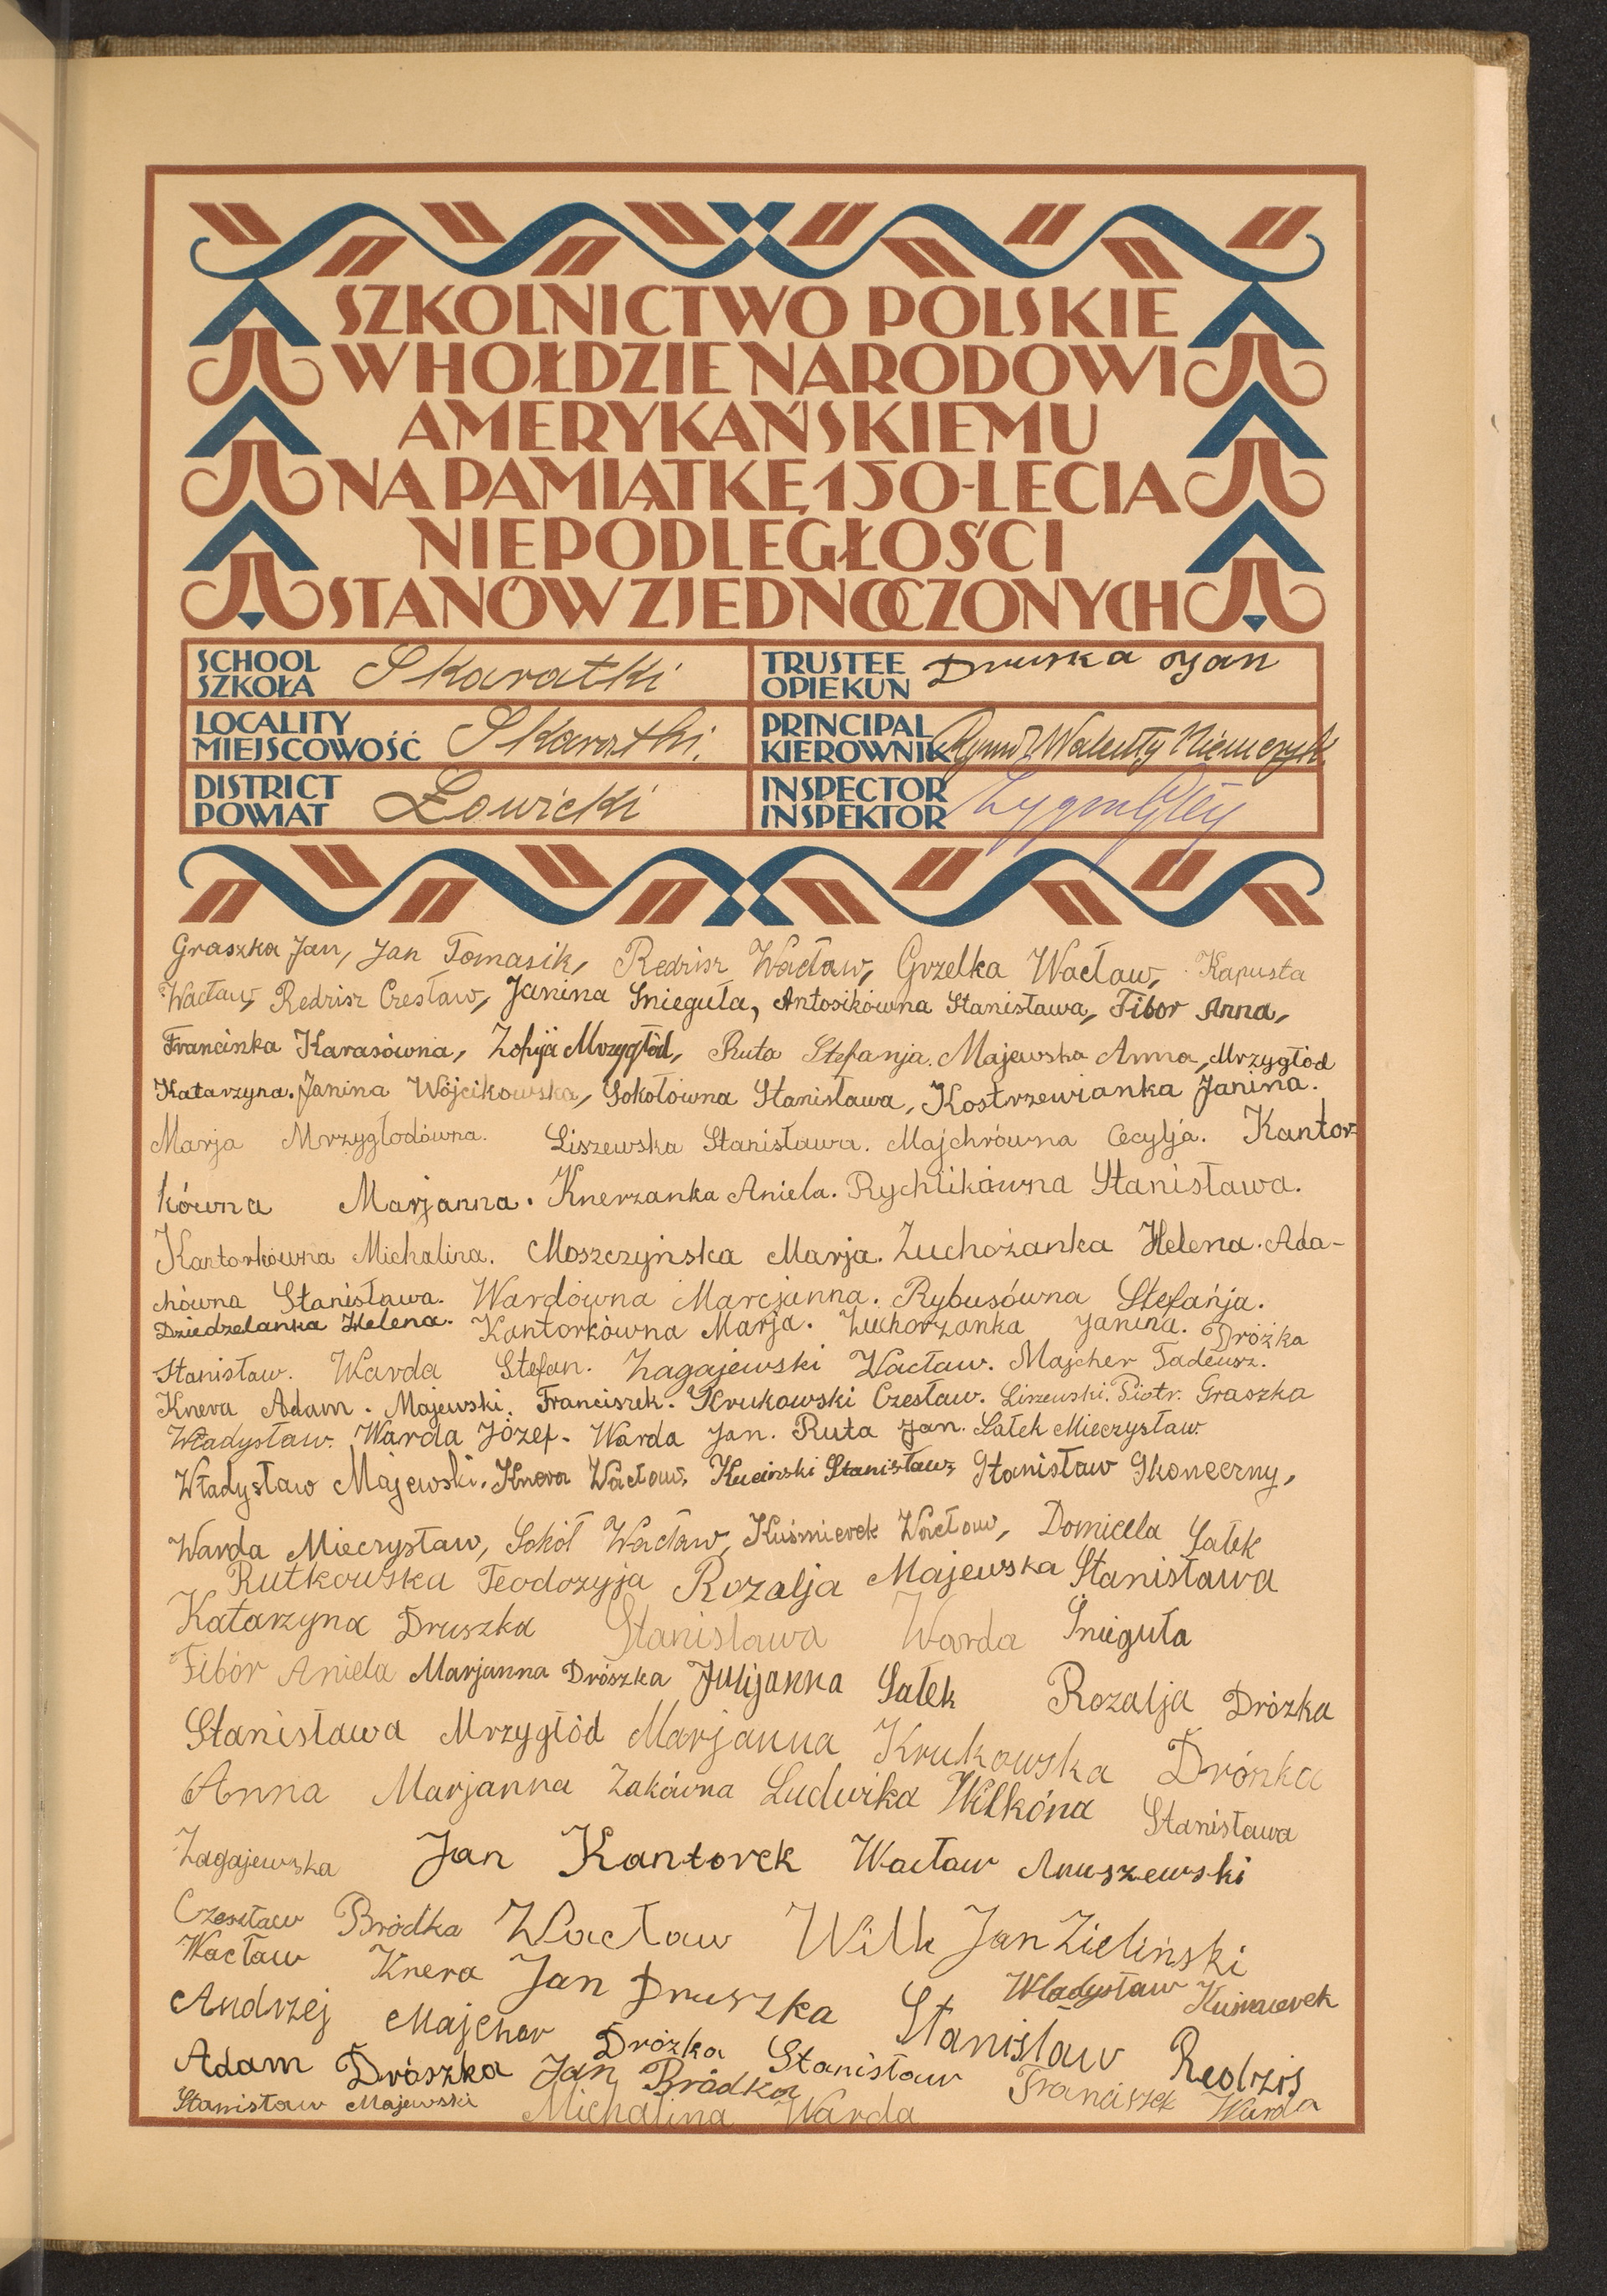 SZKOLNICTWO POLSKIE
W HOŁDZIE NARODOWI
AMERYKAŃSKIEMU
NA PAMIĄTKĘ 150-LECIA
NIEPODLEGŁOŚCI
STANÓW ZJEDNOCZONYCH
SCHOOL
SZKOŁA
Skaratki
TRUSTEE
OPIEKUN
Druska Jan
LOCALITY
MIEJSCOWOŚĆ
Skaratki.
PRINCIPAL
KIEROWNIK
DISTRICT
POWIAT
Łowicki
INSPECTOR
INSPEKTOR
Graszka Jan, Jan Tomasik, Redzisz Wacław, Grzelka Wacław, Kapusta
Wacław, Redzisz Czesław, Janina Śnieguła, Antosikówna Stanisława, Fibor Anna,
Franciszka Karasówna, Zofija Mrzygłód, Ruta Stefanja. Majewska Anna, Mrzygłód
Katarzyna. Janina Wójcikowska, Sokołówna Stanisława, Kostrzewianka Janina.
Marja Mrzygłodówna. Liszewska Stanisława. Majchrówna Cecylja. Kantor-
kówna Marjanna. Knerzanka Aniela. Rychlikówna Stanisława.
Kantorkówna Michalina. Moszczyńska Marja. Zuchożanka Helena. Ada-
chówna Stanisława. Wardówna Marcjanna. Rybusówna Stefańja.
Dziedzelanka Helena. Kantorkówna Marja. Zuchorzanka Janina. Dróżka
Stanisław. Warda Stefan. Zagajewski Wacław. Majcher Tadeusz.
Knera Adam. Majewski. Franciszek. Krukowski Czesław. Liszewski. Piotr. Graszka
Władysław. Warda Józef. Warda Jan. Ruta Jan. Sałek Mieczysław.
Władysław Majewski. Knera Wacław, Kuciński Stanisław, Stanisław Skoneczny,
Warda Mieczysław, Sokół Wacław, Kuśmierek Wacław, Domicela Sałek
Rutkowska Teodozyja Rozalja Majewska Stanisława
Katarzyna Druszka Stanisława Warda Śnieguła
Fibor Aniela Marjanna Drószka Julijanna Sałek Rozalja Drózka
Stanisława Mrzygłód Marjanna Krukowska Drózka
Anna Marjanna Żakówna Ludwika Wilkóna Stanisława
Zagajewska Jan Kantorek Wacław Anuszewski
Czesław Bródka Wacław Wilk Jan Zieliński
Wacław Knera Jan Druszka Władysław Kuśmierek
Andrzej Majcher Drózka Stanisław Redzis
Adam Drószka Jan Bródka Stanisław Franciszek Warda
Stanisław Majewski Michalina Warda